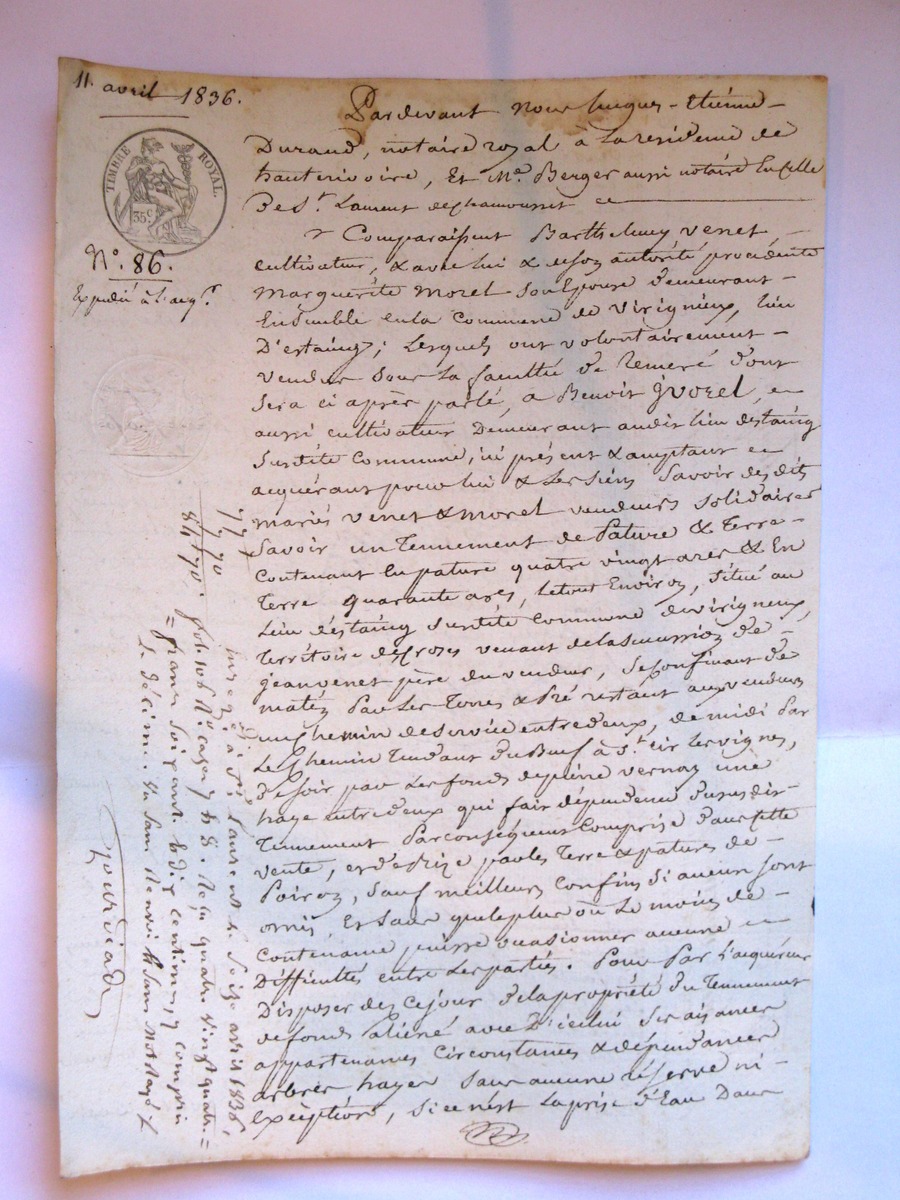 11 avril 1836.
TIMBRE ROYAL.
35 c.
N.o 86.
Expédié à l'acq.r
Pardevant nous Jacques-Etienne
Durand, notaire royal à la residence de
hauterivoire, Et M.e Berger aussi notaire
De S.t Laurent de chamousset
Comparaissent Barthelemy Venet
cultivateur, & avec lui & de son autorité procédante
Marguerite Morel son Epouse Demeurant
Ensemble en la Commune de Virigneux, lieu
D'estaing; Lesquels ont volontairement
vendu sous la faculté de Remeré dont
sera ci après parlé, a Benoit
aussi cultivateur Demeurant audit lieu destaing
susdite Commune, ici présent & acceptant
acquérant pour lui & les siens Savoir des dits
mariés Venet & Morel vendeurs solidaires
Savoir un Tennement de Pature & Terre
Contenant En pature quatre vingt ares & En
Terre quarante ares, le tout Environ, Situé au
Lieu d'estaing susdite Commune de virigneux,
Territoire des venant de la succession de
jean venet père du vendeur, se confinant de
matin Par les Terres & Pré restant aux vendeurs
un chemin de service entredeux, de midi Par
Le Chemin Tendant du à S.t Cir les vignes,
De soir par les fonds de une
haye entredeux qui fait dépendance du susdit
Tennement Par conséquent Comprise dans cette
vente, et de bize par les Terre & patures de
Poiroz, Sauf meilleurs confins si aucun sont
omis, Et sans que le plus ou le moins de
Contenance puisse occasionner aucune
Difficultés entre les parties. Pour Par l'acquéreur
Disposer dès ce jour de la propriété du Tennement
de fonds aliéné avec D'icelui ses aisances
appartenances Circonstances & dépendances
arbres hayes sans aucune réserve ni
exceptions, si ce n'est la prise d'Eau Dans
77 +
7, 70
84, 70.
à S.t Laurent le Seize avril 1836,
f.o 106 R.o case 7 & 8. Reçu quatre vingt quatre =
= francs Soixante & dix centimes, y compris
le décime.